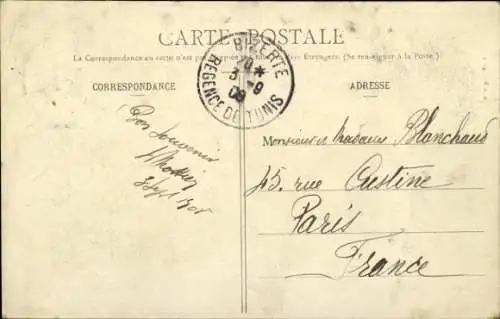 CARTE POSTALE
La Correspondance au recto n'est pas Pays Etrangers. (Se renseigner à la Poste.)
BIZERTE
3 -9
09
REGENCE DE TUNIS
CORRESPONDANCE
ADRESSE
Bon Souvenir
3 Sept
Monsieur et Madame Blanchaud
45, rue Custine
Paris
France